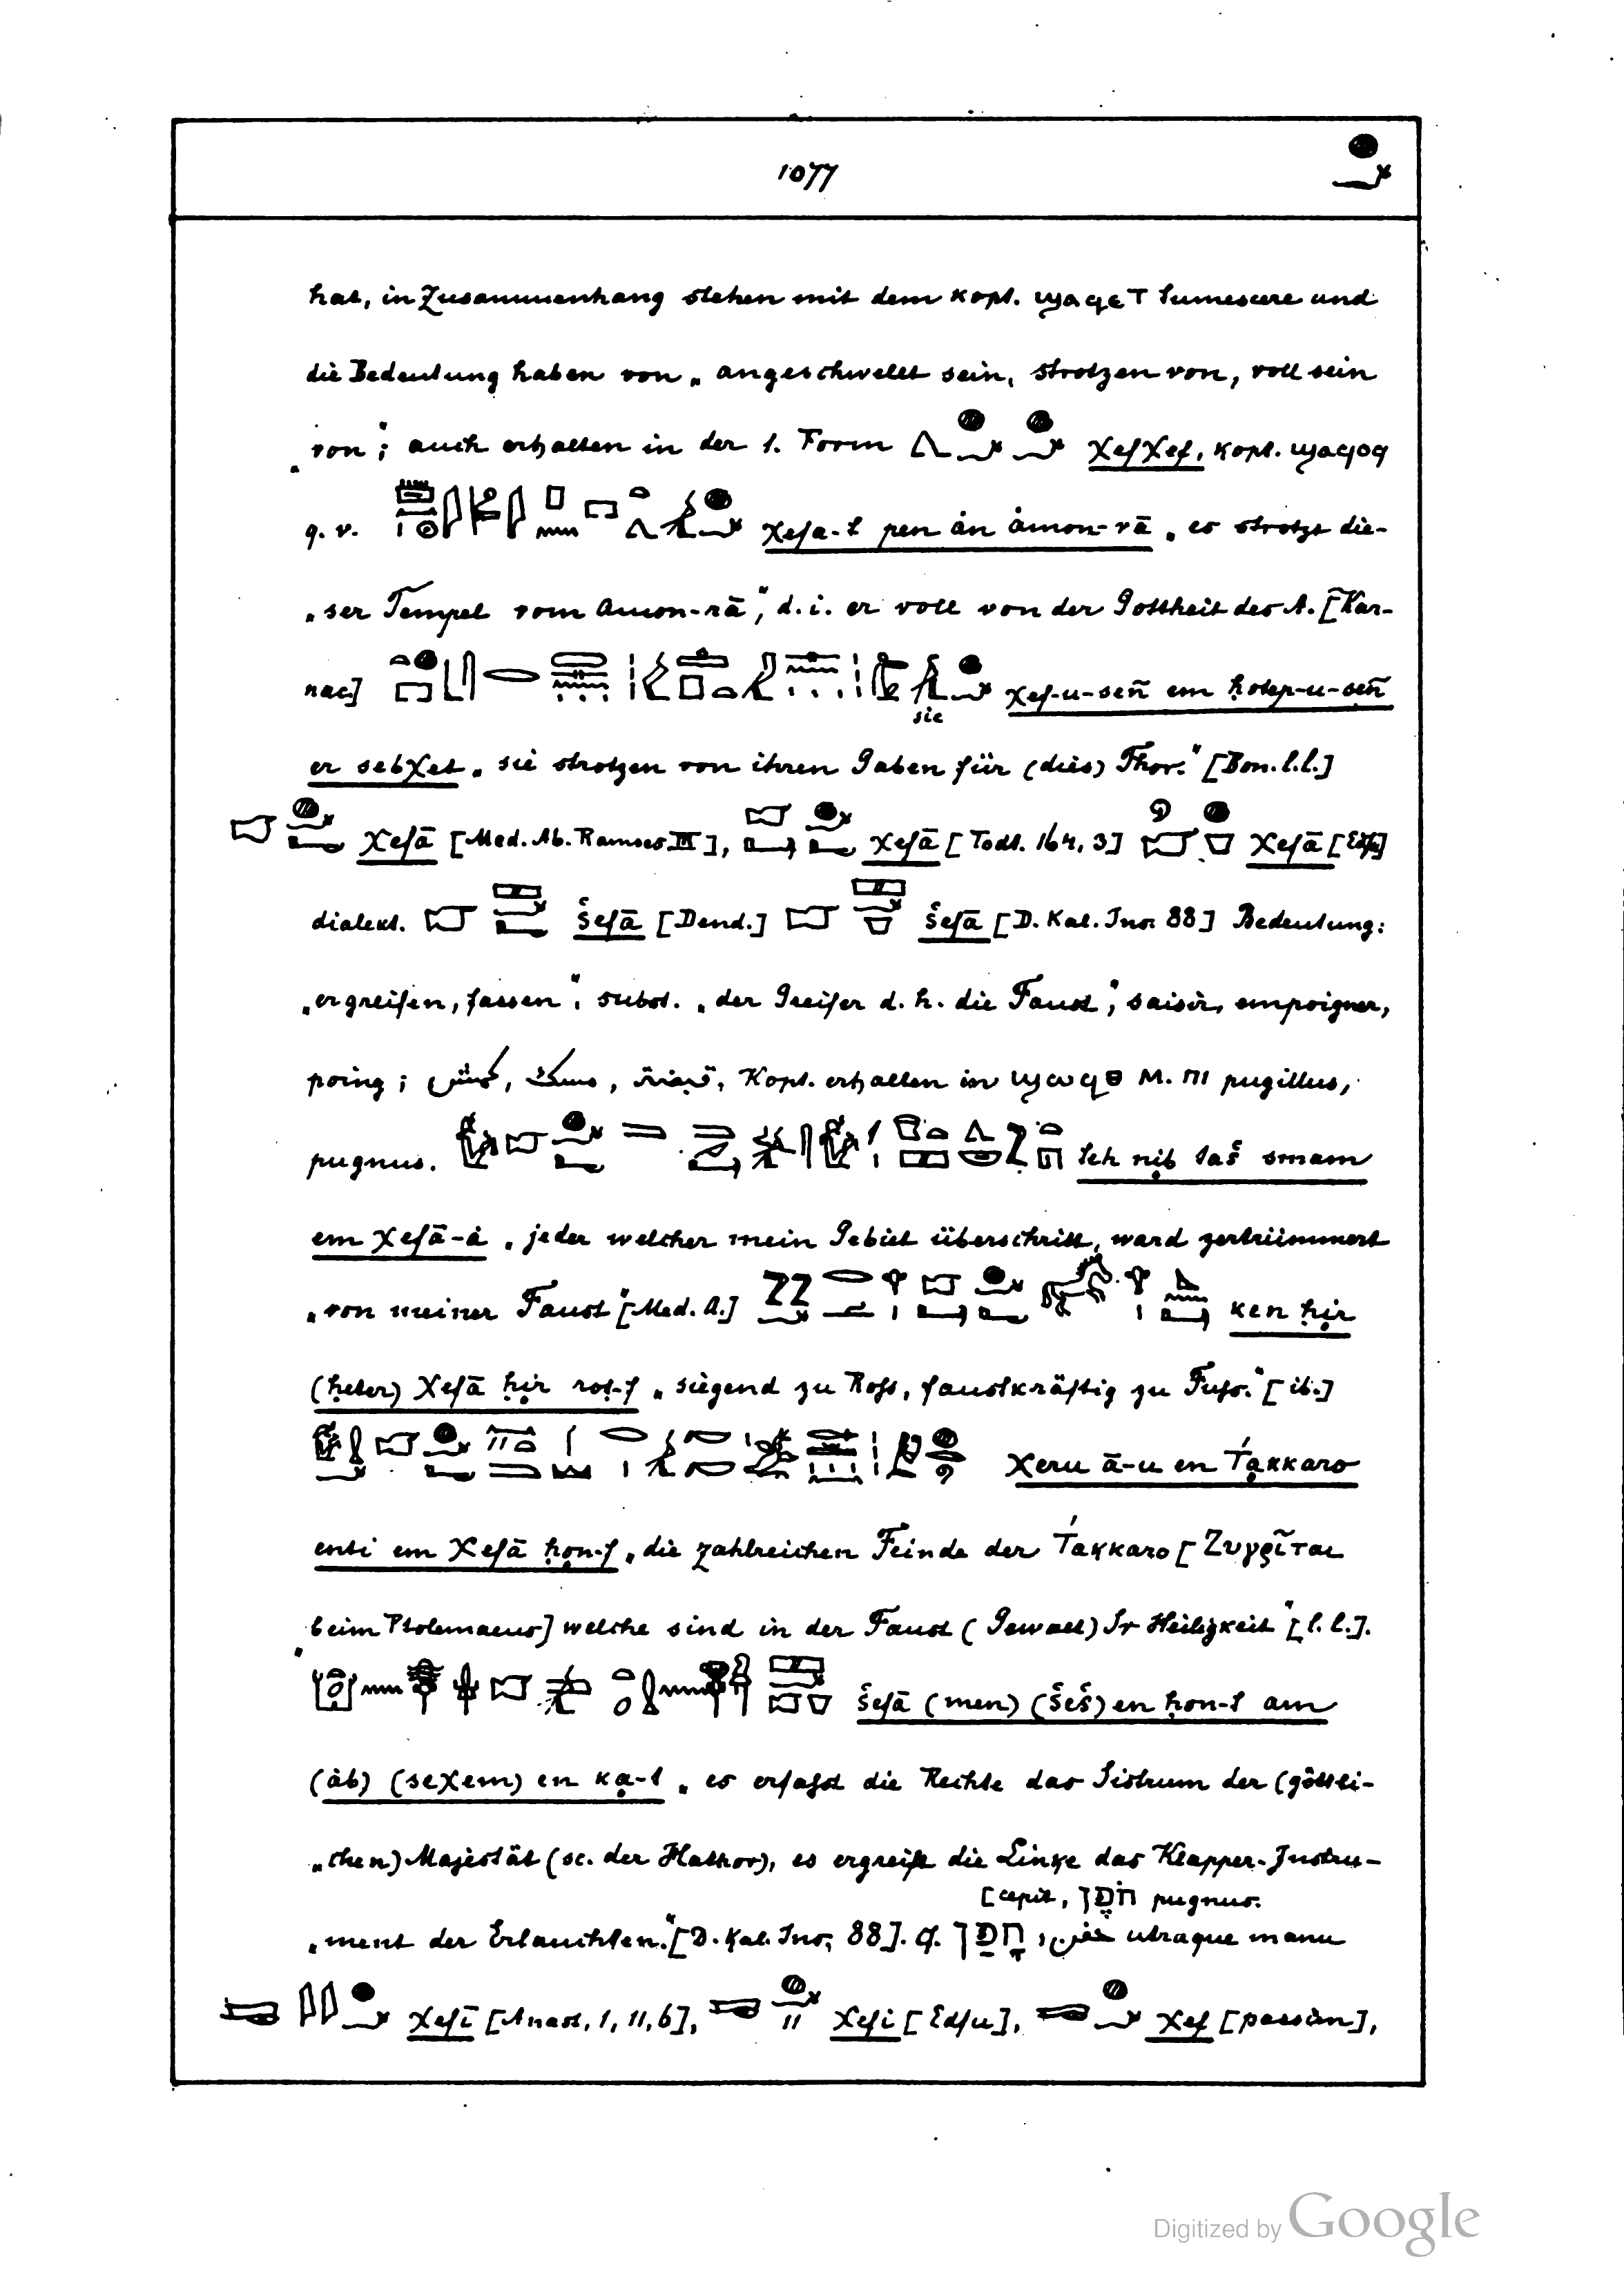 1077
hat, in Zusammenhang stehen mit dem kopt. ϣⲁϥⲉⲧ tumescere und
die Bedeutung haben von „angeschwellt sein, strotzen von, voll sein
„von“; auch erhalten in der 1. Form χefχef, kopt. ϣⲁϥⲟϥ
q. v. χefa-t pen ȧn ȧmon-rā „es strotzt die-
„ser Tempel vom Amon-rā“, d. i. er voll von der Gottheit des A. [Kar-
nac] χef-u-señ em ḥotep-u-señ
sic
er sebχet „sie strotzen von ihren Gaben für (dies) Thor.“ [Bon. l.l.]
χefā [Med. Ab. Ramses III], χefā [Todt. 164, 3] χefā [Edfu]
dialekt. šefā [Dend.] šefā [D. Kal. Ins. 88] Bedeutung:
„ergreifen, fassen“, subst. „der Greifer d. h. die Faust“, saisir, empoigner,
poing; Kopt. erhalten in ϣⲱϥⲑ M. ⲡⲓ pugillus,
pugnus. teh nib taš smam
em χefā-ȧ „jeder welcher mein Gebiet überschritt, ward zertrümmert
„von meiner Faust“ [Med. A.] ken ḥir
(ḥeter) χefā ḥir rot-f „siegend zu Roß, faustkräftig zu Fuß.“ [ib.]
χeru ā-u en T́akkaro
enti em χefā ḥon-f „die zahlreichen Feinde der T́akkaro [Ζυγρῖται
„beim Ptolemaeus] welche sind in der Faust (Gewalt) Sr Heiligkeit“ [l. l.].
šefā (men) (šeš) en ḥon-t am
(ȧb) (seχem) en ka-t „es erfaßt die Rechte das Sistrum der (göttli-
„chen) Majestät (sc. der Hathor), es ergreift die Linke das Klapper-Instru-
[cepit, חֹפֶן pugnus.
„ment der Erlauchten.“ [D. Kal. Ins. 88]. cf. חָפַן, حفن utraque manu
χefī [Anast, 1, 11, 6], χefi [Edfu], χef [passim],
Digitized by Google